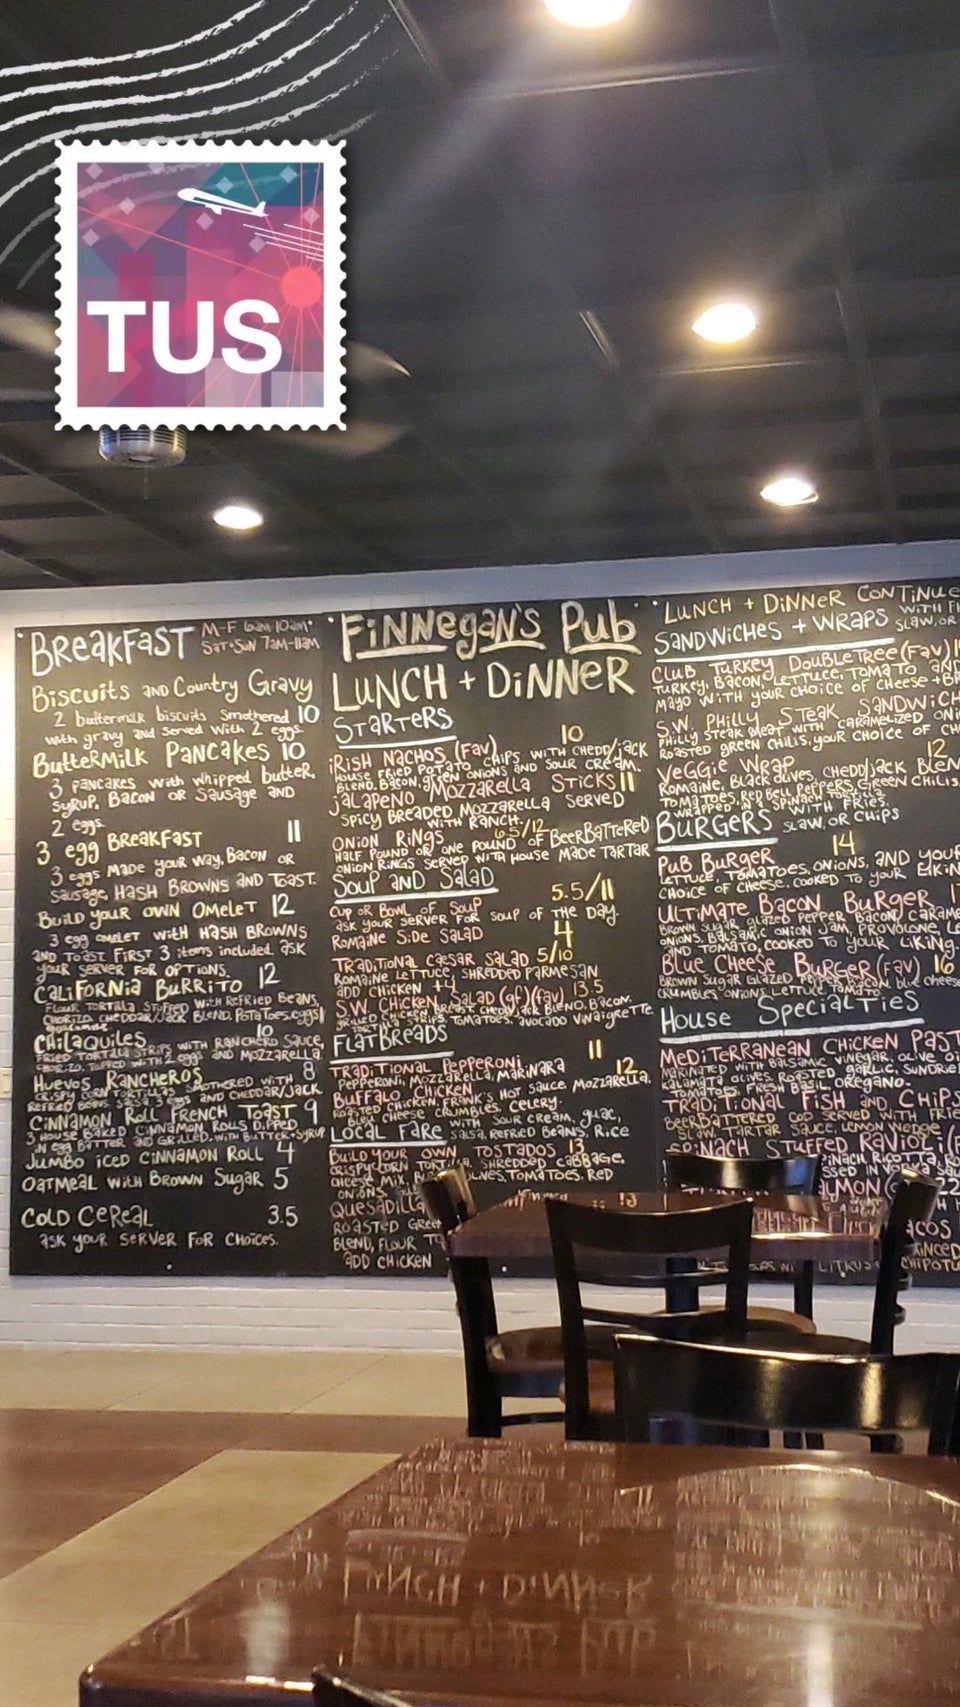 TUS
BREAKFAST M-F 6am-10am
SAT+SUN 7AM-11AM
Biscuits and Country Gravy
2 buttermilk biscuits smothered 10
with gravy and served with 2 eggs.
Buttermilk Pancakes 10
3 pancakes with whipped butter,
syrup, Bacon or Sausage and
2 eggs.
3 egg Breakfast 11
3 eggs made your way, Bacon or
Sausage, Hash Browns and Toast.
Build your own Omelet 12
3 egg omelet with Hash Browns
and Toast First 3 items included. ask
your server for options.
California Burrito 12
Flour Tortilla Stuffed with Refried Beans,
Chorizo, cheddar/Jack Blend, Potatoes, eggs
Chilaquiles 10
Fried Tortilla Strips with Ranchero Sauce,
Chorizo, Topped with 2 eggs and Mozzarella.
Huevos Rancheros 8
Crispy Corn Tortillas Smothered with
Refried Beans, Salsa, 2 eggs and cheddar/Jack
Cinnamon Roll French Toast 9
3 House Baked Cinnamon Rolls Dipped
in egg Batter and Grilled, with Butter + Syrup
Jumbo iced Cinnamon Roll 4
Oatmeal with Brown Sugar 5
Cold Cereal 3.5
ask your server for choices.
Finnegan's Pub
Lunch + Dinner
Starters
Irish Nachos (Fav) 10
House Fried Potato Chips with Chedd/jack
Blend, Bacon, green onions and Sour Cream.
Jalapeno Mozzarella Sticks 11
Spicy Breaded Mozzarella Served
with Ranch.
Onion Rings 6.5/12
Half Pound or one Pound of BeerBattered
Onion Rings served with House Made Tartar
Soup and Salad
Cup or Bowl of Soup 5.5/11
ask your server for soup of the day.
Romaine Side Salad 4
Traditional Caesar Salad 5/10
Romaine Lettuce, Shredded Parmesan
add Chicken +4
S.W. Chicken Salad (gf)(fav) 13.5
Grilled Chicken Breast, Chedd/jack Blend, Bacon,
Tortilla Strips, Tomatoes, avocado vinaigrette
Flatbreads
Traditional Pepperoni 11
Pepperoni, Mozzarella, Marinara
Buffalo Chicken 12
Roasted Chicken, Frank's Hot Sauce, Mozzarella,
Bleu Cheese Crumbles, Celery.
Local Fare with Sour Cream, guac,
Salsa, Refried Beans, Rice
Build your own Tostados 13
Crispy Corn Tortilla, Shredded Cabbage,
Cheese Mix, Olives, Tomatoes, Red
Onions,
Quesadilla
Roasted Green
Blend, Flour
add Chicken
Lunch + Dinner Continue
Sandwiches + Wraps with
slaw, or
Club Turkey DoubleTree (Fav)
Turkey, Bacon, Lettuce, Tomato and
Mayo with your choice of Cheese +
S.W. Philly Steak Sandwich
Philly Steak Meat with Caramelized
Roasted green chilis, your choice of
Veggie Wrap 12
Romaine, Black Olives, Chedd/jack Blen
Tomatoes, Red Bell Peppers, Green Chilis
wrapped in a Spinach Tortilla
Burgers with Fries,
slaw, or chips
Pub Burger 14
Lettuce, Tomatoes, onions, and your
choice of cheese, cooked to your
Ultimate Bacon Burger
Brown Sugar glazed Pepper Bacon,
Onions, Balsamic onion Jam, Provolone,
and Tomato, cooked to your liking.
Blue Cheese Burger (fav) 16
Brown Sugar Glazed Peppered Bacon, Blue cheese
Crumbles, onions, Lettuce, Tomato
House Specialties
Mediterranean Chicken Past
Marinated with Balsamic Vinegar, Olive
Kalamata olives, Roasted garlic,
Tomatoes, Fresh Basil, oregano.
Traditional Fish and Chips
BeerBattered Cod served with
Slaw, Tartar Sauce, Lemon Wedge
Spinach Stuffed Ravioli